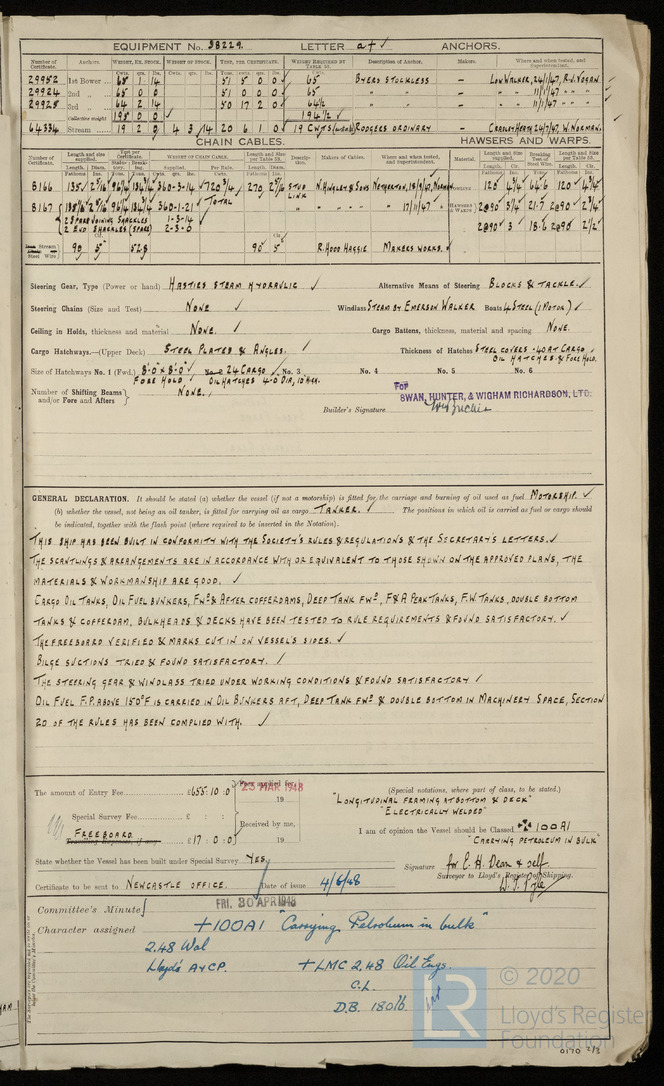 EQUIPMENT No. 38229. LETTER a† ✓ ANCHORS.
Number of Certificate. Anchors. WEIGHT, EX. STOCK. WEIGHT OF STOCK. TEST, PER CERTIFICATE. WEIGHT REQUIRED BY TABLE 53. Description of Anchor. Makers. Where and when tested, and Superintendent.
Cwts. qrs. lbs. Cwts. qrs. lbs. Tons. cwts. qrs. lbs.
29952 1st Bower 65 1 14 51 5 0 0 ✓ 65 BYERS STOCKLESS – LOW WALKER, 24/1/47, R.J. VOGAN
29924 2nd „ 65 0 0 51 5 0 0 65 „ „ – „ 11/1/47 „ „
29925 3rd „ 64 2 14 50 17 2 0 64½ „ „ – „ 11/1/47 „ „
Collective weight 195 0 0 ✓ 194½ ✓
64334 Stream 19 2 0 4 3 14 20 6 1 0 ✓ 19 CWTS RODGERS ORDINARY – CRADLEY HEATH 24/7/47, W. NORMAN.
CHAIN CABLES. HAWSERS AND WARPS.
Number of Certificate. Length and size supplied. Test per Certificate. WEIGHT OF CHAIN CABLE. Length and Size per Table 53. Description. Makers of Cables. Where and when tested, and Superintendent. Material. Length and Size supplied. Breaking Test of Steel Wire. Length and Size per Table 53.
8166 135 ✓ 2 5/16 360-3-14 ✓ 720¾ ✓ 270 2 5/16 STUD LINK N. HINGLEY & SONS NETHERTON, 18/9/47, NORMAN 120 4¾ 64·6 120 4¾
8167 360-1-21 ✓ TOTAL „ „ „ 17/11/47 „ HAWSERS & WARPS 2@90 3¼ 21·7 2@90 2¾
2 SPARE JOINING SHACKLES 1-3-14 2@90 3 18·6 2@90 2½
2 END SHACKLES (SPARE) 2-3-0
Stream Steel Wire 90 5" 52·8 90 5" R. HOOD HAGGIE MAKERS WORKS. ✓
Steering Gear, Type (Power or hand) HASTIES STEAM HYDRAULIC ✓ Alternative Means of Steering BLOCKS & TACKLE. ✓
Steering Chains (Size and Test) NONE ✓ Windlass STEAM BY EMERSON WALKER Boats 4 STEEL (1 MOTOR) ✓
Ceiling in Holds, thickness and material NONE. ✓ Cargo Battens, thickness, material and spacing NONE.
Cargo Hatchways.—(Upper Deck) STEEL PLATES & ANGLES. ✓ Thickness of Hatches STEEL COVERS ·40 AT CARGO ✓
OIL HATCHES & FORE HOLD.
Size of Hatchways No. 1 (Fwd.) 8'-0" x 8'-0" ✓ No. 2 24 CARGO ✓ No. 3 No. 4 No. 5 No. 6
FORE HOLD ✓ OIL HATCHES 4'-0 DIA, 10" HIGH.
Number of Shifting Beams and/or Fore and Afters } NONE. ✓
For
SWAN, HUNTER, & WIGHAM RICHARDSON, LTD.
Builder's Signature
GENERAL DECLARATION. It should be stated (a) whether the vessel (if not a motorship) is fitted for the carriage and burning of oil used as fuel MOTORSHIP. ✓
(b) whether the vessel, not being an oil tanker, is fitted for carrying oil as cargo TANKER. ✓ The positions in which oil is carried as fuel or cargo should
be indicated, together with the flash point (where required to be inserted in the Notation).
THIS SHIP HAS BEEN BUILT IN CONFORMITY WITH THE SOCIETY'S RULES & REGULATIONS & THE SECRETARY'S LETTERS. ✓
THE SCANTLINGS & ARRANGEMENTS ARE IN ACCORDANCE WITH OR EQUIVALENT TO THOSE SHOWN ON THE APPROVED PLANS, THE
MATERIALS & WORKMANSHIP ARE GOOD. ✓
CARGO OIL TANKS, OIL FUEL BUNKERS, FWD & AFTER COFFERDAMS, DEEP TANK FWD, F & A PEAK TANKS, F.W. TANKS, DOUBLE BOTTOM
TANKS & COFFERDAM, BULKHEADS & DECKS HAVE BEEN TESTED TO RULE REQUIREMENTS & FOUND SATISFACTORY. ✓
THE FREEBOARD VERIFIED & MARKS CUT IN ON VESSEL'S SIDES. ✓
BILGE SUCTIONS TRIED & FOUND SATISFACTORY. ✓
THE STEERING GEAR & WINDLASS TRIED UNDER WORKING CONDITIONS & FOUND SATISFACTORY ✓
OIL FUEL F.P. ABOVE 150°F IS CARRIED IN OIL BUNKERS AFT, DEEP TANK FWD & DOUBLE BOTTOM IN MACHINERY SPACE, SECTION
20 OF THE RULES HAS BEEN COMPLIED WITH. ✓
The amount of Entry Fee £655:10:0 Fees applied for, 23 MAR 1948 19
(Special notations, where part of class, to be stated.)
"LONGITUDINAL FRAMING AT BOTTOM & DECK"
"ELECTRICALLY WELDED"
Special Survey Fee £ : : Received by me,
I am of opinion the Vessel should be Classed ✠ 100A1
FREEBOARD
Travelling Expenses, if any £17:0:0 19
"CARRYING PETROLEUM IN BULK"
State whether the Vessel has been built under Special Survey YES Signature for E. H. Dean & self.
Surveyor to Lloyd's Register of Shipping.
Certificate to be sent to NEWCASTLE OFFICE. Date of issue 4/6/48
FRI. 30 APR 1948
Committee's Minute
Character assigned +100A1 "Carrying Petroleum in bulk"
2.48 Wal
Lloyd's A&CP. +LMC 2.48 Oil Engs.
C.L.
D.B. 180 lb
LR © 2020
Lloyd's Register
Foundation
0170 2/3